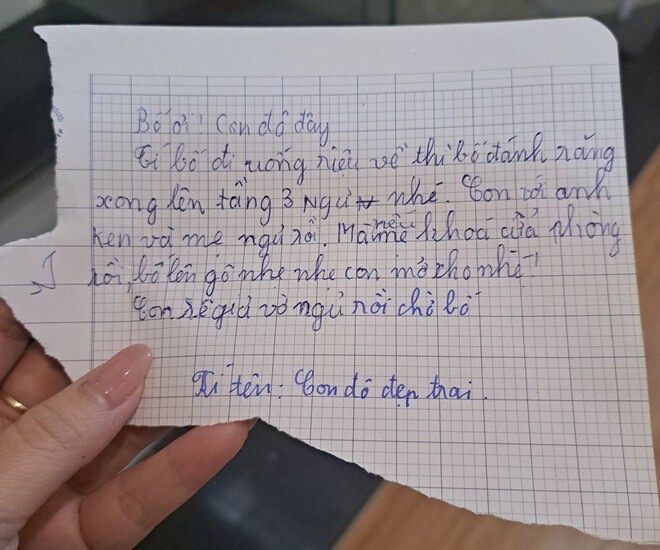 Bố ơi! Con đô đây
Tí bố đi uống riệu về thì bố đánh răng
xong lên tầng 3 ngủ nhé. Con với anh
Ken và mẹ ngủ rồi. Mà nếu mẹ khoá cửa phòng
rồi, bố lên gõ nhẹ nhẹ con mở cho nhé!
Con sẽ giả vờ ngủ rồi chờ bố
Kí tên: Con đô đẹp trai.